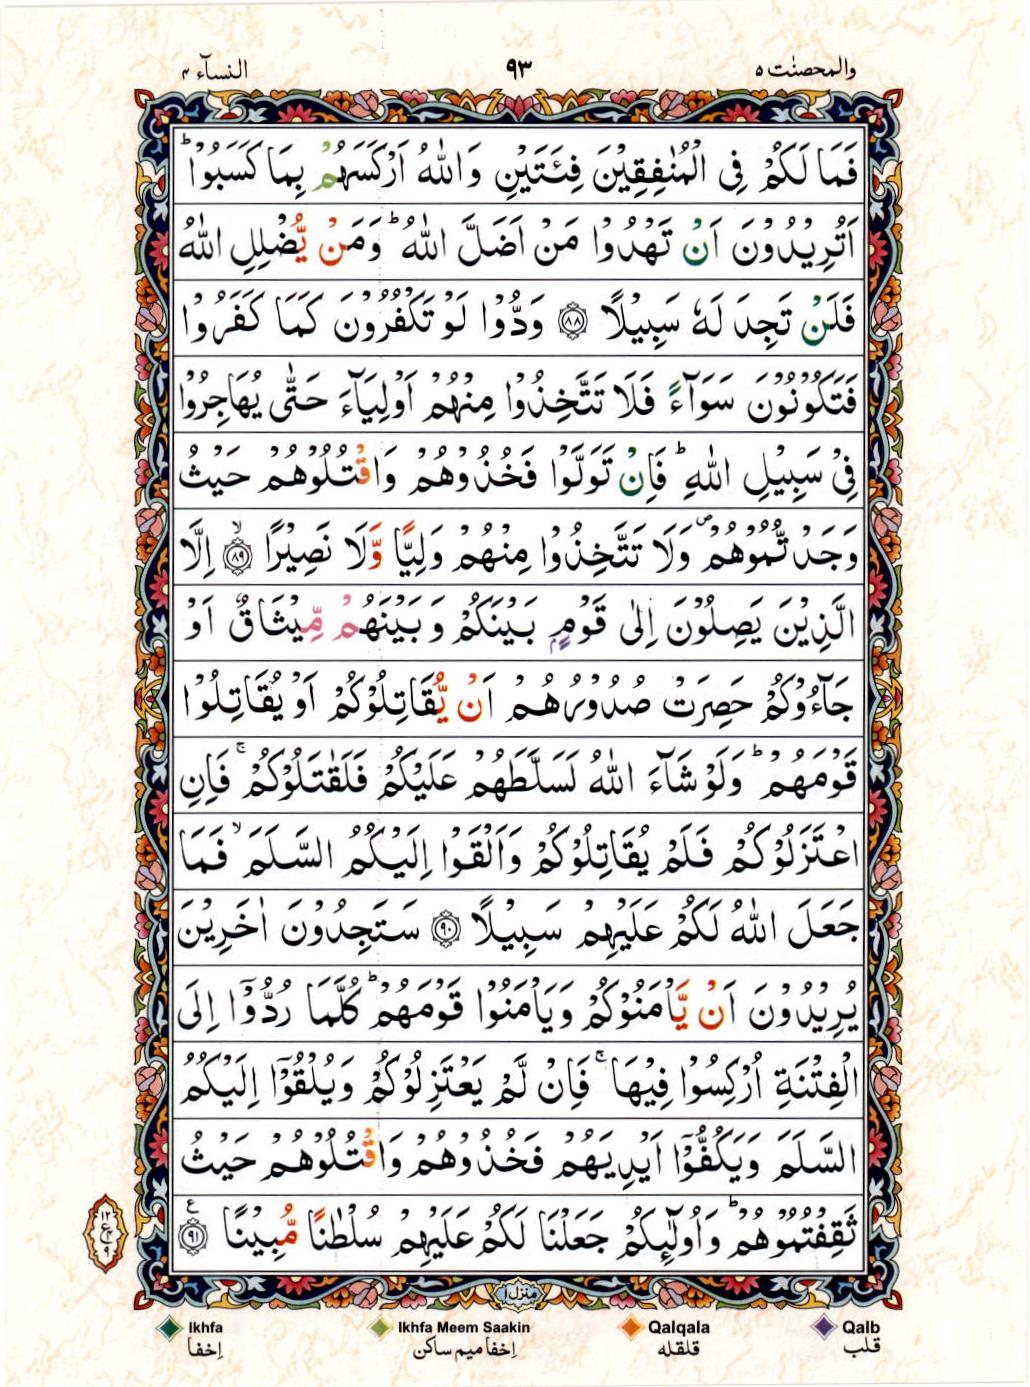 والمحصنٰت ٥
٩٣
النسآء ٤
فَمَا لَكُمْ فِى الْمُنٰفِقِيْنَ فِئَتَيْنِ وَاللّٰهُ اَرْكَسَهُمْ بِمَا كَسَبُوْا ؕ
اَتُرِيْدُوْنَ اَنْ تَهْدُوْا مَنْ اَضَلَّ اللّٰهُ ؕ وَمَنْ يُّضْلِلِ اللّٰهُ
فَلَنْ تَجِدَ لَهٗ سَبِيْلًا ﴿٨٨﴾ وَدُّوْا لَوْ تَكْفُرُوْنَ كَمَا كَفَرُوْا
فَتَكُوْنُوْنَ سَوَآءً فَلَا تَتَّخِذُوْا مِنْهُمْ اَوْلِيَآءَ حَتّٰى يُهَاجِرُوْا
فِىْ سَبِيْلِ اللّٰهِ ؕ فَاِنْ تَوَلَّوْا فَخُذُوْهُمْ وَاقْتُلُوْهُمْ حَيْثُ
وَجَدْتُّمُوْهُمْ ۖ وَلَا تَتَّخِذُوْا مِنْهُمْ وَلِيًّا وَّلَا نَصِيْرًا ۙ﴿٨٩﴾ اِلَّا
الَّذِيْنَ يَصِلُوْنَ اِلٰى قَوْمٍۭ بَيْنَكُمْ وَبَيْنَهُمْ مِّيْثَاقٌ اَوْ
جَآءُوْكُمْ حَصِرَتْ صُدُوْرُهُمْ اَنْ يُّقَاتِلُوْكُمْ اَوْ يُقَاتِلُوْا
قَوْمَهُمْ ؕ وَلَوْ شَآءَ اللّٰهُ لَسَلَّطَهُمْ عَلَيْكُمْ فَلَقٰتَلُوْكُمْ ۚ فَاِنِ
اعْتَزَلُوْكُمْ فَلَمْ يُقَاتِلُوْكُمْ وَاَلْقَوْا اِلَيْكُمُ السَّلَمَ ۙ فَمَا
جَعَلَ اللّٰهُ لَكُمْ عَلَيْهِمْ سَبِيْلًا ﴿٩٠﴾ سَتَجِدُوْنَ اٰخَرِيْنَ
يُرِيْدُوْنَ اَنْ يَّاْمَنُوْكُمْ وَيَاْمَنُوْا قَوْمَهُمْ ؕ كُلَّمَا رُدُّوْۤا اِلَى
الْفِتْنَةِ اُرْكِسُوْا فِيْهَا ۚ فَاِنْ لَّمْ يَعْتَزِلُوْكُمْ وَيُلْقُوْۤا اِلَيْكُمُ
السَّلَمَ وَيَكُفُّوْۤا اَيْدِيَهُمْ فَخُذُوْهُمْ وَاقْتُلُوْهُمْ حَيْثُ
ثَقِفْتُمُوْهُمْ ؕ وَاُولٰٓئِكُمْ جَعَلْنَا لَكُمْ عَلَيْهِمْ سُلْطٰنًا مُّبِيْنًا ﴿٩١﴾ ع
١٢
ع ٤
٩
منزل ١
Ikhfa
Ikhfa Meem Saakin
Qalqala
Qalb
إخفا
إخفا ميم ساكن
قلقله
قلب